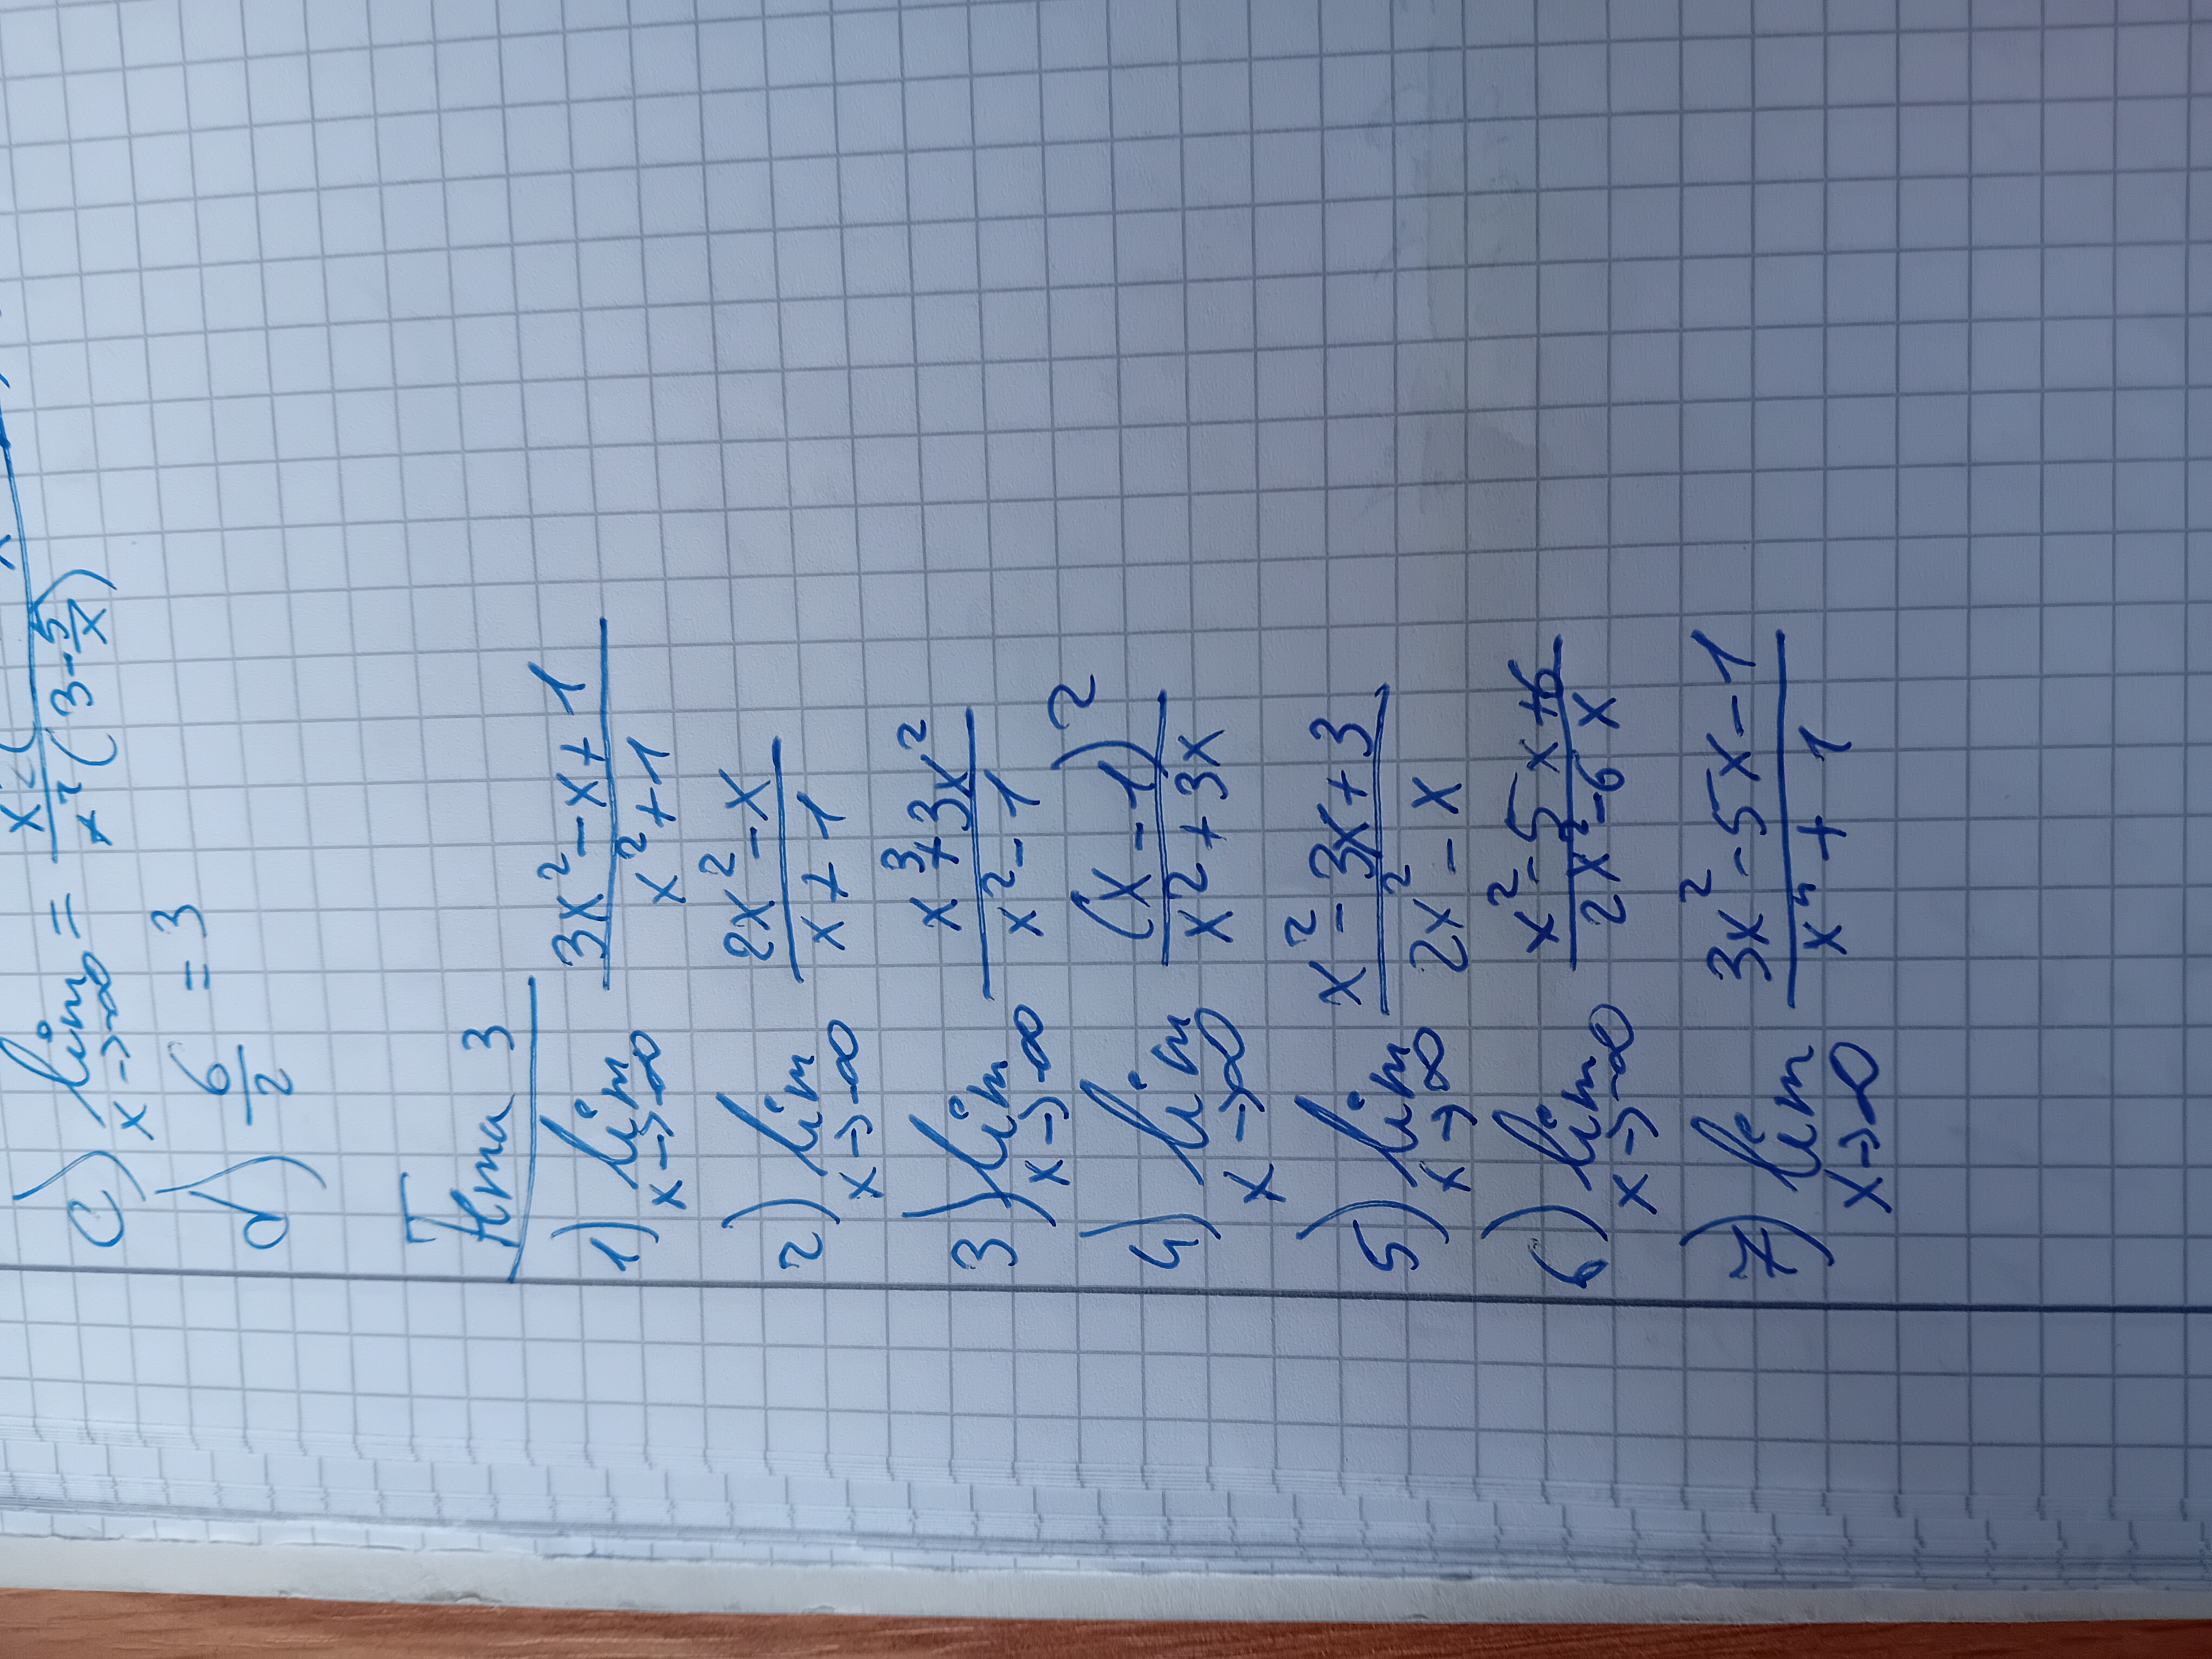 c) lim x→-∞ = x²( / x²(3-5/x)
d) 6/2 = 3
Tema 3
1) lim x→-∞ (3x²-x+1)/(x²+1)
2) lim x→-∞ (2x²-x)/(x+1)
3) lim x→-∞ (x³+3x²)/(x²-1)
4) lim x→∞ (x-1)²/(x²+3x)
5) lim x→∞ (x²-3x+3)/(2x²-x)
6) lim x→-∞ (x²-5x+6)/(2x²-6x)
7) lim x→∞ (3x²-5x-1)/(x⁴+1)